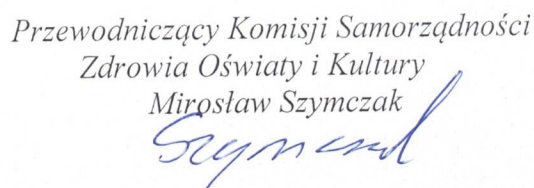 Przewodniczący Komisji Samorządności
Zdrowia Oświaty i Kultury
Mirosław Szymczak
Szymczak